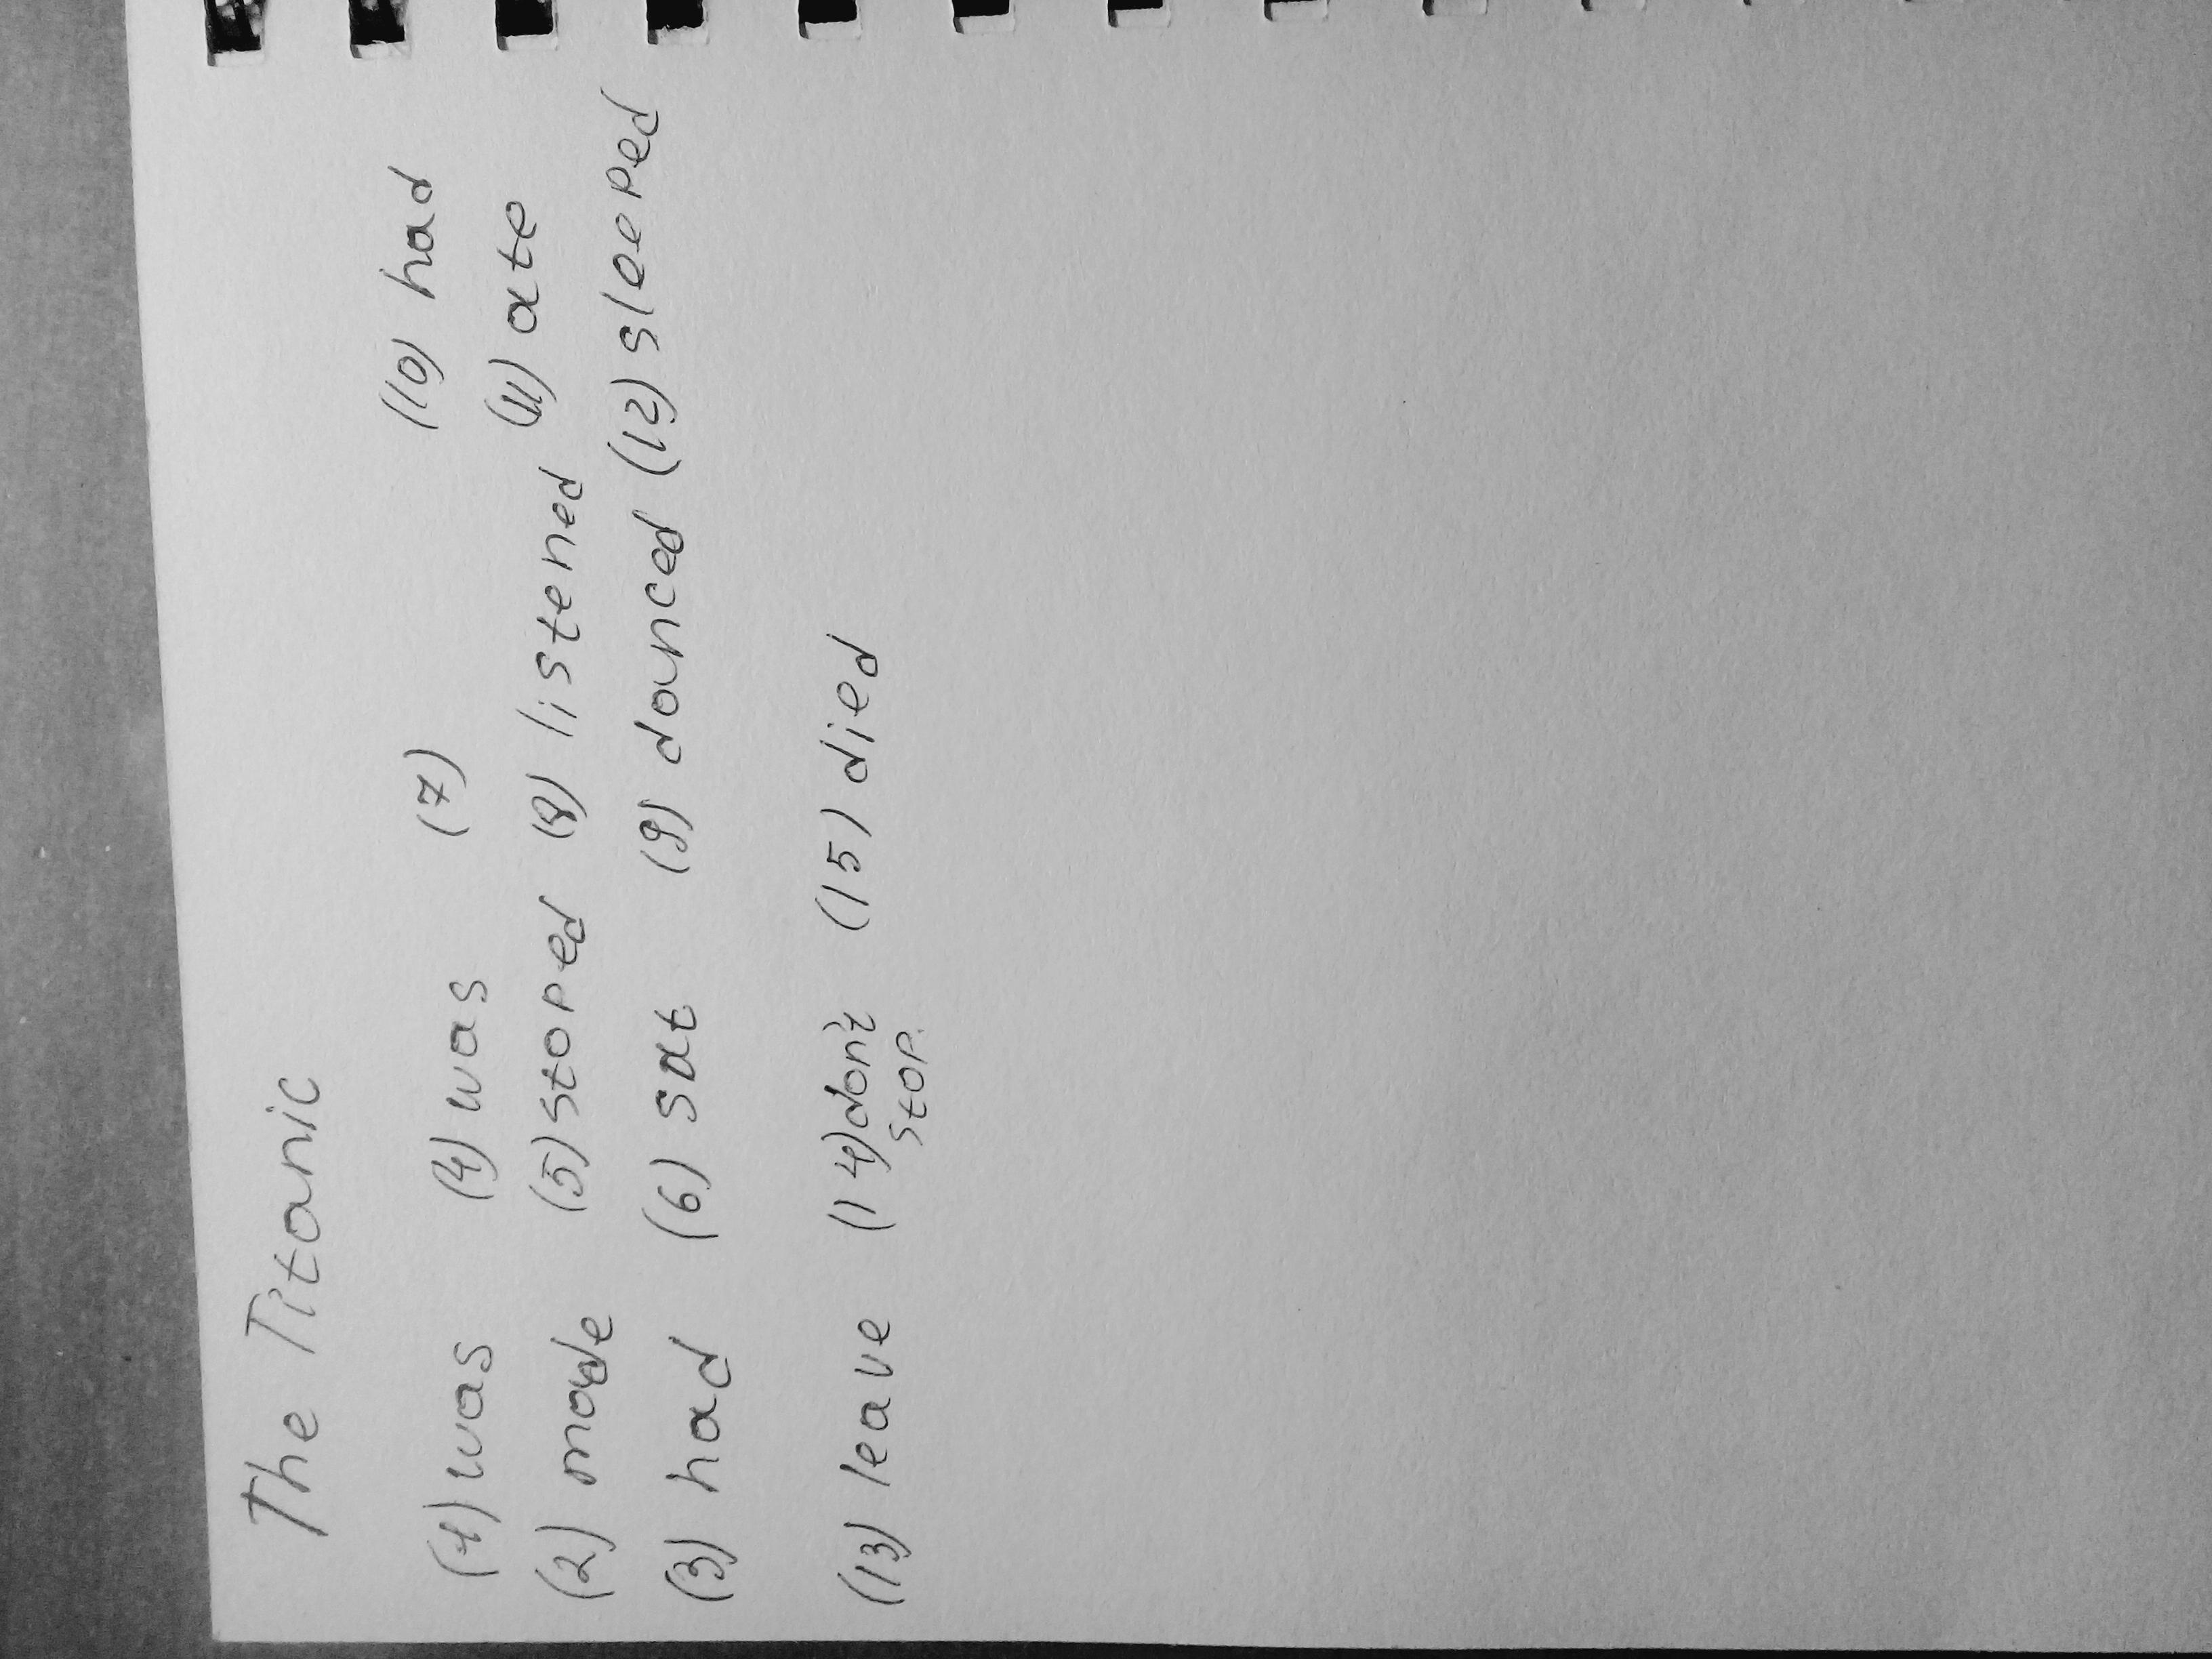 The Titanic
(1) was (4) was (7) (10) had
(2) made (5) stoped (8) listened (11) ate
(3) had (6) sat (9) danced (12) sleeped
(13) leave (14) don't (15) died
stop.